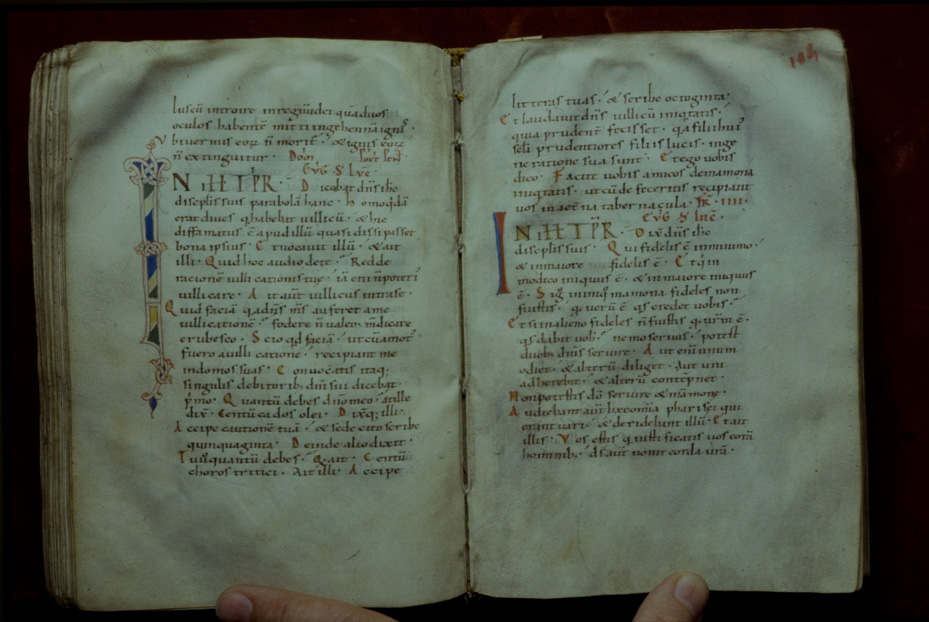 luscū introire inregnūdei quāduos
oculos habentē mitti ingehennā ignis.
Vbi vermis eorꝫ ñ morit᷑. & ignis eorꝫ
ñ extinguitur.
EVG S LVC
IN ILL TPR. Dicebat dn̄s ih̄c
discip̄lis suis parabolā hanc. homoq̇dā
erat dives q̇ habebat villicū. & hic
diffamatus ē apud illū quasi dissipasset
bona ipsius. Et vocavit illū. & ait
illi. Quid hoc audio de te. Redde
rationē villicationis tuę. iā enī ñ poteri
villicare. Ait aut̄ villicus intra se.
Quid faciā q̇a dn̄s m̄s aufert a me
villicationē. fodere ñ valeo. mendicare
erubesco. Scio qd faciā. ut cū amot᷑
fuero a villicatione. recipiant me
in domos suas. Convocatis itaq;
singulis debitorib; dn̄i sui dicebat
p̄mo. Quantū debes dn̄o meo. at ille
dix̄. Centū cados olei. Dix̄q; illi.
Accipe cautionē tuā. & sede cito scribe
quinquaginta. Deinde alio dixit.
Tu v̊ quantū debes. Q̇ ait. Centū
choros tritici. Ait illi. Accipe
104
litteras tuas. & scribe octoginta.
Et laudavit dn̄s villicū iniq̇tatis.
quia prudent̄ fecisset. q̇a filii hui᷑
sc̄li prudentiores filiis lucis. in ge
neratione sua sunt. Et ego vobis
dico. Facite vobis amicos de mamona
iniq̇tatis. ut cū defeceritis recipiant
vos in aet̄na tabernacula. FR. IIII.
EVG S LVC.
IN ILL TPR. Dix̄ dn̄s ih̄c
discip̄lis suis. Qui fidelis ē in minimo.
& in maiore fidelis ē. Et q̇ in
modico iniquus ē. & in maiore iniquus
ē. Si ḡ in iniq̇ mamona fideles non
fuistis. q̇ verū ē q̇s credet vobis.
Et si in alieno fideles ñ fuistis. q̇ vr̄m ē.
q̇s dabit vob̄. nemo servus potest
duob; dn̄is servire. Aut enī unum
odiet. & alterū diliget. Aut uni
adherebit. & alterū contēpnet.
Non potestis dō servire & māmone.
Audiebant aut̄ hęc omīa pharisei qui
erant avari. & deridebant illū. Et ait
illis. Vos estis q̇ iustificatis vos corā
hominib;. d̄s aut̄ novit corda vr̄a.